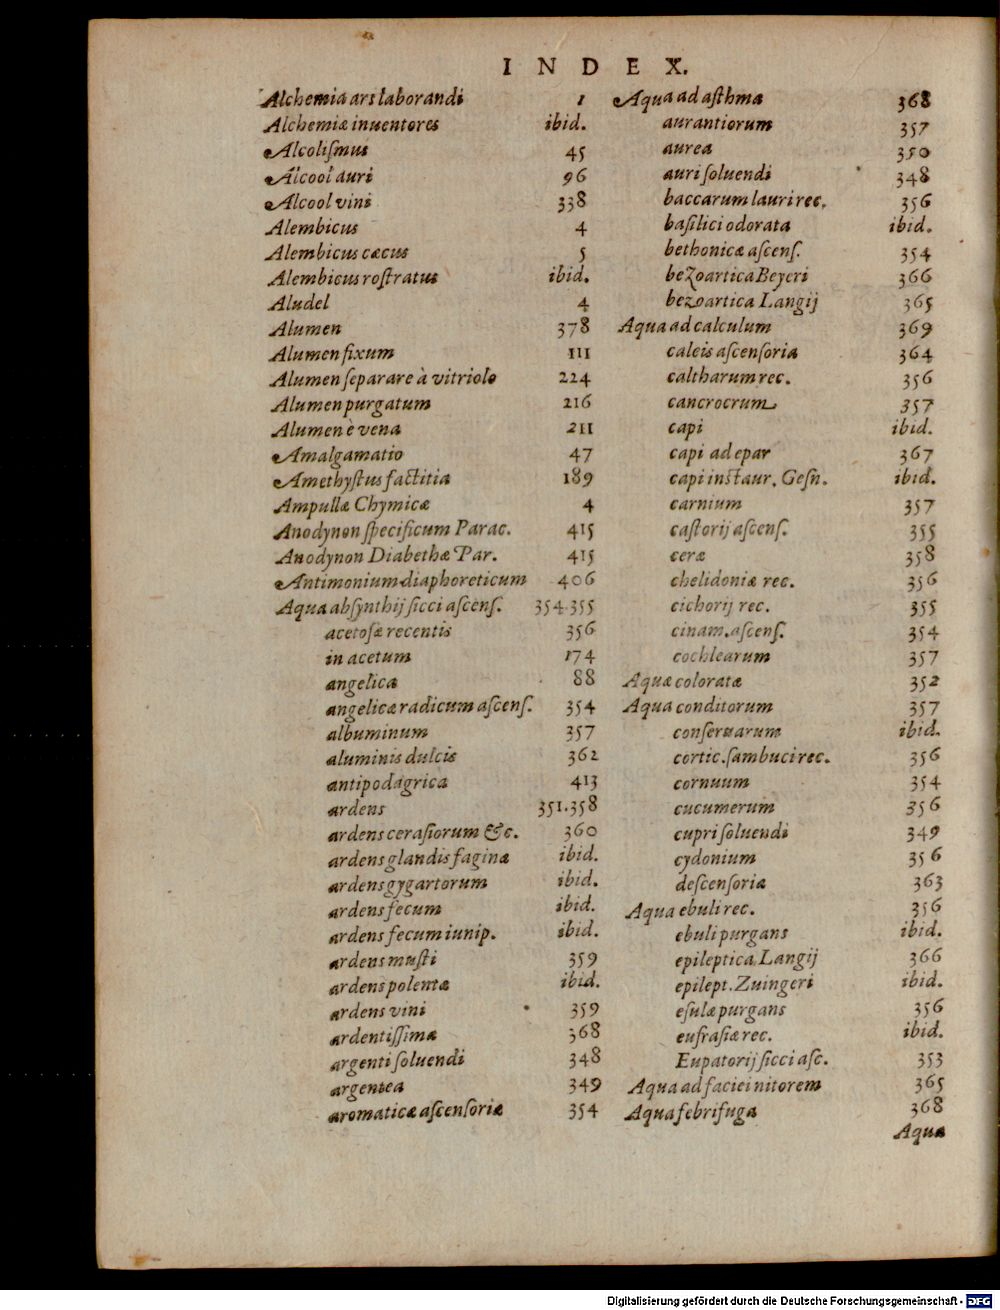 INDEX.
Alchemia ars laborandi 1
Alchemiæ inuentores ibid.
Alcoliſmus 45
Alcool auri 96
Alcool vini 338
Alembicus 4
Alembicus cæcus 5
Alembicus roſtratus ibid.
Aludel 4
Alumen 378
Alumen fixum 111
Alumen ſeparare à vitriolo 224
Alumen purgatum 216
Alumen è vena 211
Amalgamatio 47
Amethyſtus factitia 189
Ampullæ Chymicæ 4
Anodynon ſpecificum Parac. 415
Anodynon Diabethæ Par. 415
Antimonium diaphoreticum 406
Aqua abſynthij ſicci aſcenſ. 354.355
acetoſæ recentis 356
in acetum 174
angelica 88
angelicæ radicum aſcenſ. 354
albuminum 357
aluminis dulcis 362
antipodagrica 413
ardens 351.358
ardens ceraſiorum &c. 360
ardens glandis faginæ ibid.
ardens gygartorum ibid.
ardens fecum ibid.
ardens fecum iunip. ibid.
ardens muſti 359
ardens polentæ ibid.
ardens vini 359
ardentiſſima 368
argenti ſoluendi 348
argentea 349
aromaticæ aſcenſoriæ 354
Aqua ad aſthma 368
aurantiorum 357
aurea 350
auri ſoluendi 348
baccarum lauri rec. 356
baſilici odorata ibid.
bethonicæ aſcenſ. 354
bezoartica Beyeri 366
bezoartica Langij 365
Aqua ad calculum 369
caleis aſcenſoria 364
caltharum rec. 356
cancrorum 357
capi ibid.
capi ad epar 367
capi inſtaur. Geſn. ibid.
carnium 357
caſtorij aſcenſ. 355
ceræ 358
chelidoniæ rec. 356
cichorij rec. 355
cinam. aſcenſ. 354
cochlearum 357
Aquæ coloratæ 352
Aqua conditorum 357
conſeruarum ibid.
cortic. ſambuci rec. 356
cornuum 354
cucumerum 356
cupri ſoluendi 349
cydonium 356
deſcenſoria 363
Aqua ebuli rec. 356
ebuli purgans ibid.
epileptica Langij 366
epilept. Zuingeri ibid.
eſulæ purgans 356
eufraſiæ rec. ibid.
Eupatorij ſicci aſc. 353
Aqua ad faciei nitorem 365
Aqua febrifuga 368
Aqua
Digitalisierung gefördert durch die Deutsche Forschungsgemeinschaft - DFG